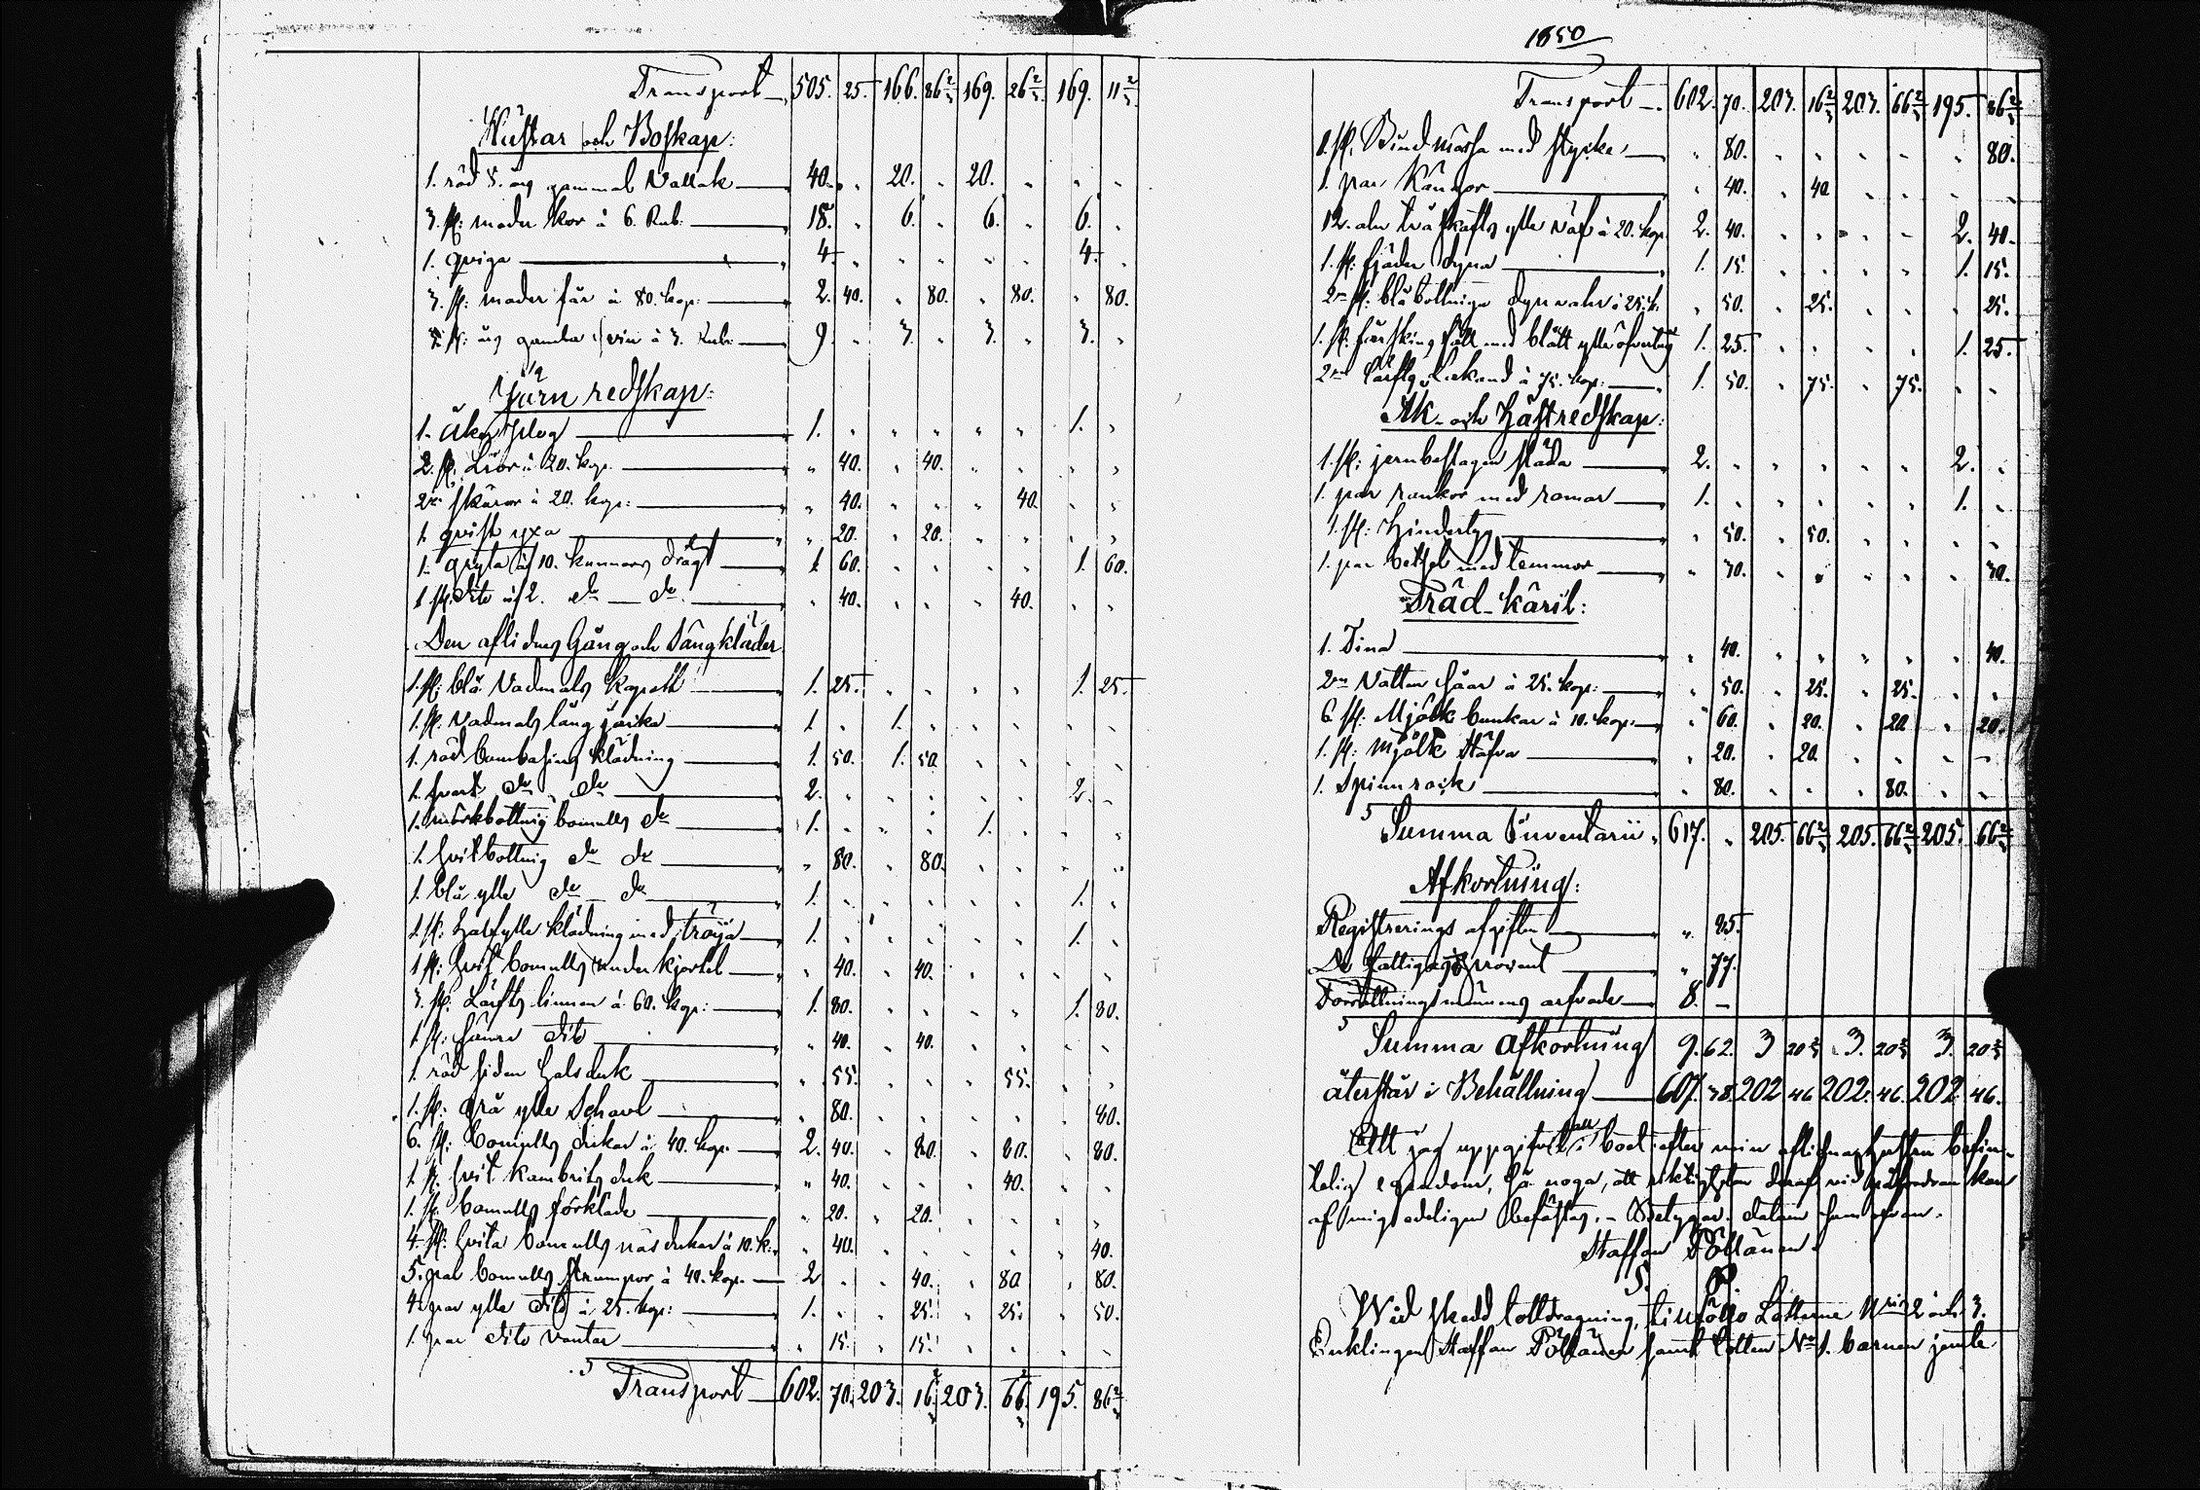 Transport 505. 25. 166. 86⅔ 169. 26⅔ 169. 11⅔
Hästar och Boskap:
1. röd 8. årg gammal Vallak 40. " 20. " 20. " " "
3. st: moder kor à 6. Rub. 18. " 6. " 6. " 6. "
1. qviga 4. " " " " " 4. "
3. st: moder får à 80. kop: 2. 40. " 80. " 80. " 80.
3. st: årg gamla svin à 3. Rub: 9. " 3. " 3. " 3. "
Järn redskap:
1. Åker plog 1. " " " " " 1. "
2. st. Liar à 20. kop. " 40. " 40. " " " "
2ne skäror à 20. kop: " 40. " " " 40. " "
1. qvist yxa " 20. " 20. " " " "
1. gryta af 10. kannors drägt 1 60. " " " " 1. 60.
1 st. dito af 2. do do " 40. " " " 40. " "
Den aflidnes Gång och Sängkläder
1. st: blå Vadmals Kapott 1. 25. " " " " 1. 25.
1. st. Vadmals lång jacka 1 " 1. " " " " "
1. röd bombasins klädning 1. 50. 1. 50. " " " "
1. svart do do 2. " " " " " 2. "
1. mörkbottnig bomulls do 1. " " " 1. " " "
1. hvitbottnig do do " 80. " 80. " " " "
1. blå ylle do do 1. " " " " " 1. "
1. st: halfylle klädning med tröija 1. " " " " " 1. "
1 st: hvit bomulls under kjortel " 40. " 40. " " " "
3. st. Lärfts linnen à 60. kop: 1. 80. " " " " 1. 80.
1 st: sämre dito " 40. " 40. " " " "
1. röd siden halsduk " 55. " " " 55. " "
1. st: grå ylle Schavl " 80. " " " " " 80.
6. st: bomulls dukar à 40. kop. 2. 40. " 80. " 80. " 80.
1. st. hvit kambriks duk " 40. " " " 40. " "
1. st. bomulls förkläde " 20. " 20. " " " "
4. st: hvita bomulls näs dukar à 10. k. " 40. " " " " " 40.
5. par bomulls strumpor à 40. kop. 2 " " 40. " 80 " 80.
4. par ylle dito à 25. kop: 1. " " 25. " 25. " 50.
1. par dito vantar " 15. " 15. " " " "
Transport 602. 70. 203. 16⅔ 203. 66⅔ 195. 86⅔
1850
Transport 602. 70. 203. 16⅔ 203. 66⅔ 195. 86⅔
1. st. Bindmössa med stycke " 80. " " " " " 80.
1. par Kängor " 40. " 40. " " " "
12. aln tvåskafts ylle väf à 20. kop. 2. 40. " " " " 2. 40.
1. st: fjäder dyna 1. 15. " " " " 1. 15.
2ne st: blåbottniga dynvahr à 25. k. " 50. " 25. " " " 25.
1. st. fårskins fäll med blått ylle öfvertyg 1. 25. " " " " 1. 25.
2ne Lärfts Lakand à 75. kop: 1. 50. " 75. " 75. " "
Åk- och Hästredskap:
1. st: jernbeslagen släda 2. " " " " " 2. "
1. par rankor med romor 1. " " " " " 1. "
1. st: Hindertyg " 50. " 50. " " " "
1. par betsel med temmor " 30. " " " " " 30.
Träd-käril:
1. Tina " 40. " " " " " 40.
2ne Vatten såar à 25. kop: " 50. " 25. " 25. " "
6. st: Mjölk bunkar à 10. kop. " 60. " 20. " 20. " 20.
1. st: Mjölk Stäfva " 20. " 20. " " " "
1. Spinnrock " 80. " " " 80. " "
Summa Inventarii 617. " 205. 66⅔ 205. 66⅔ 205. 66⅔
Afkortning:
Registrerings afgiften " 85.
De fattigas procent " 77.
Förrättningsmännens arfvode 8. –
Summa Afkortning 9. 62. 3 20⅔ 3. 20⅔ 3. 20⅔
återstår i Behållning 607. 38. 202 46 202. 46. 202. 46.
Att jag uppgifvit all i boet efter min aflidna hustru befin-
telig egendom, så noga, att riktigheten deraf vid påfodran kan
af mig edeligen befästas. – Betygar. datum som ofvan.
Staffan Pöllänen
Wid skedd lottdragning, tillföllo Lotterne Nris 2 och 3.
Enklingen Staffan Pöllänen samt Lotten No 1. barnen jemte